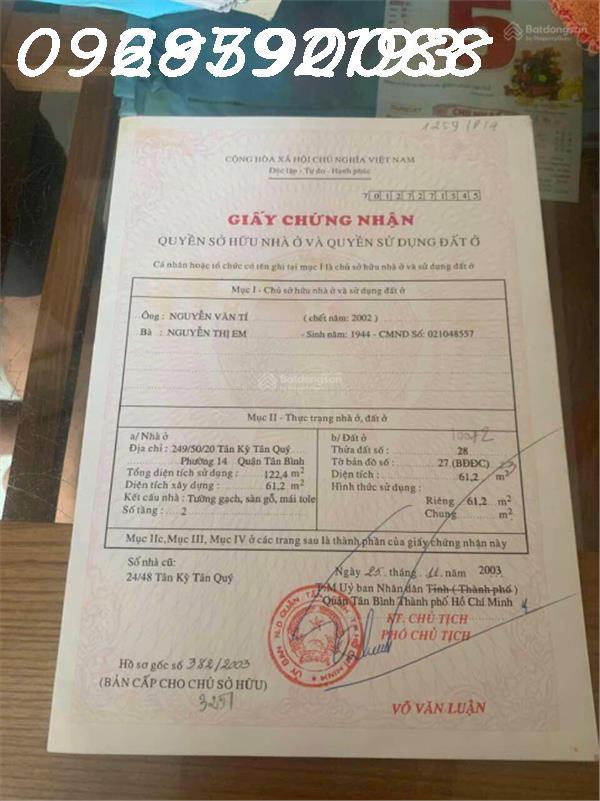 Batdongsan
by PropertyGuru
5
CHỦ NHẬT
1259/819
CỘNG HÒA XÃ HỘI CHỦ NGHĨA VIỆT NAM
Độc lập - Tự do - Hạnh phúc
7 0 1 2 7 2 7 1 3 4 5
GIẤY CHỨNG NHẬN
QUYỀN SỞ HỮU NHÀ Ở VÀ QUYỀN SỬ DỤNG ĐẤT Ở
Cá nhân hoặc tổ chức có tên ghi tại mục I là chủ sở hữu nhà ở và sử dụng đất ở
Mục I - Chủ sở hữu nhà ở và sử dụng đất ở
Ông : NGUYỄN VĂN TÍ ( chết năm: 2002 )
Bà : NGUYỄN THỊ EM - Sinh năm: 1944 - CMND Số: 021048557
Batdongsan
by PropertyGuru
Mục II - Thực trạng nhà ở, đất ở
a/ Nhà ở
Địa chỉ : 249/50/20 Tân Kỳ Tân Quý
Phường 14 Quận Tân Bình
Tổng diện tích sử dụng : 122,4 m2
Diện tích xây dựng : 61,2 m2
Kết cấu nhà : Tường gạch, sàn gỗ, mái tole
Số tầng : 2
b/ Đất ở
Thửa đất số : 28
Tờ bản đồ số : 27 (BĐĐC)
Diện tích : 61,2 m2
Hình thức sử dụng :
Riêng : 61,2 m2
Chung : m2
Mục IIc, Mục III, Mục IV ở các trang sau là thành phần của giấy chứng nhận này
Số nhà cũ:
24/48 Tân Kỳ Tân Quý
Ngày 25 tháng 11 năm 2003
T.M Uỷ ban Nhân dân Tỉnh ( Thành phố )
Quận Tân Bình Thành phố Hồ Chí Minh
KT. CHỦ TỊCH
PHÓ CHỦ TỊCH
Hồ sơ gốc số 382/2003
(BẢN CẤP CHO CHỦ SỞ HỮU)
3251
VÕ VĂN LUẬN